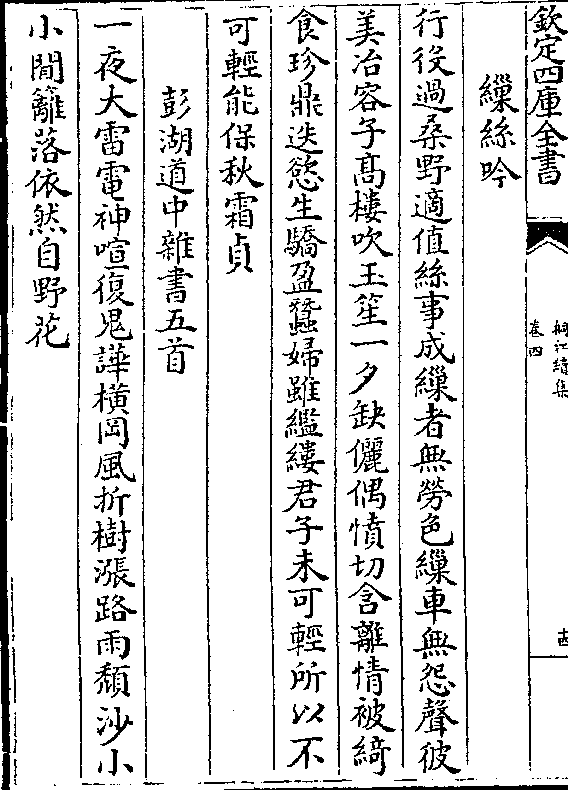 欽定四庫全書
桐江續集
卷四
繅絲吟
行役過桑野適值絲事成繅者無勞色繅車無怨聲彼
美冶容子髙樓吹玉笙一夕缺儷偶憤切含離情被綺
食珍鼎迭慾生驕盈蠶婦雖繿縷君子未可輕所以不
可輕能保秋霜貞
彭湖道中雜書五首
一夜大雷電神喧復鬼譁横岡風折樹漲路雨頽沙小
小間籬落依然自野花